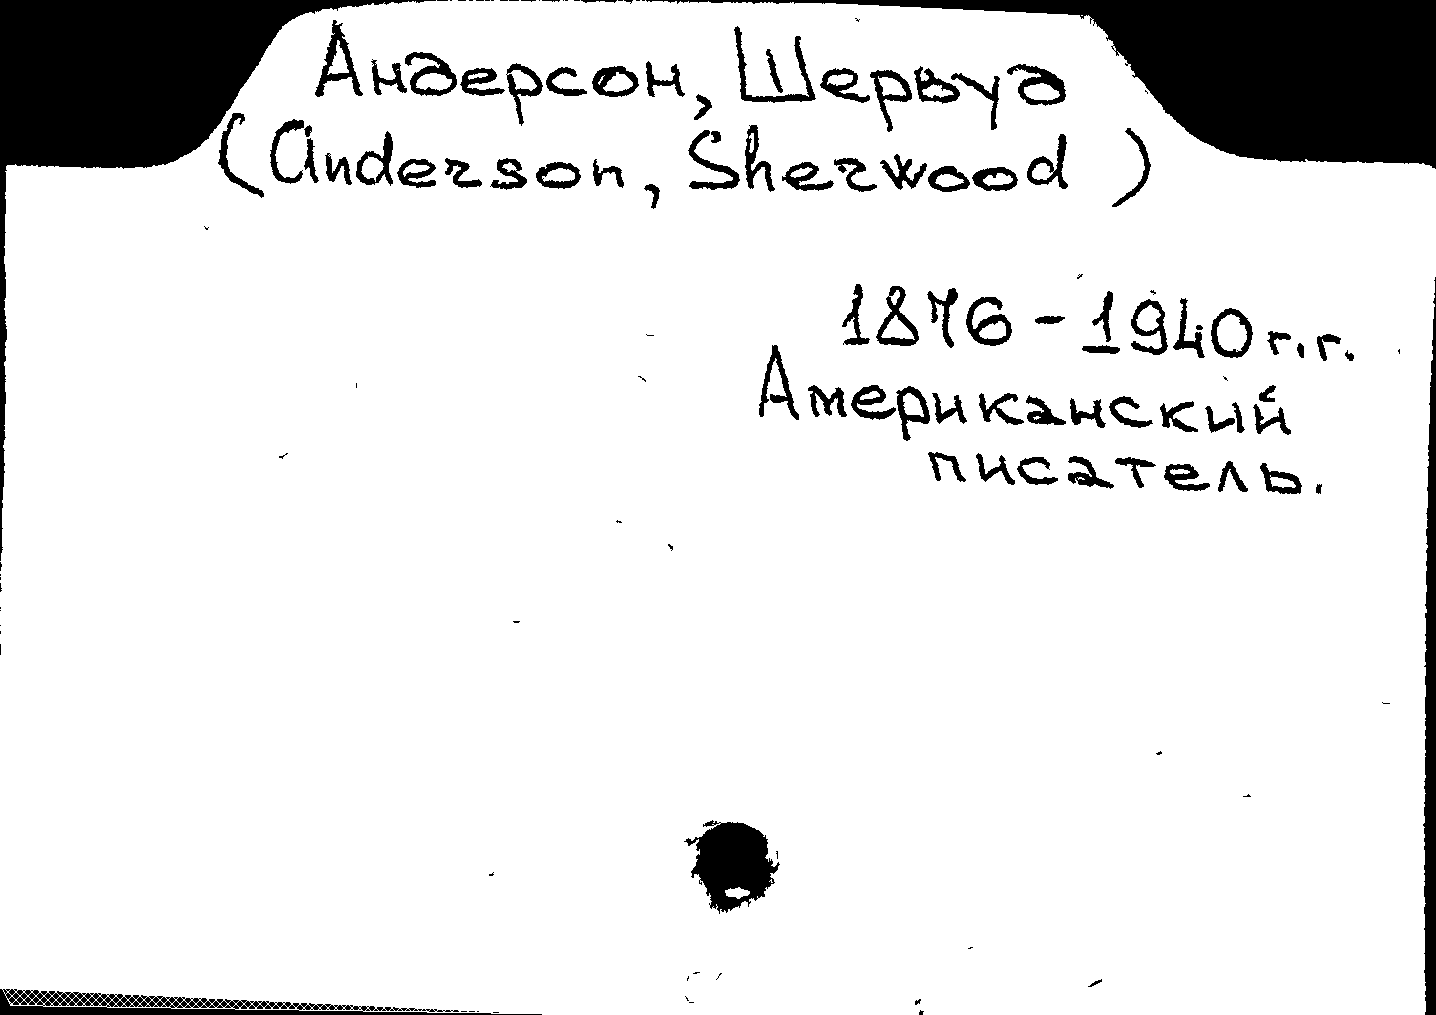 Андерсон, Шервуд
(Anderson, Sherwood )
1876-1940 г.г.
Американский
писатель.